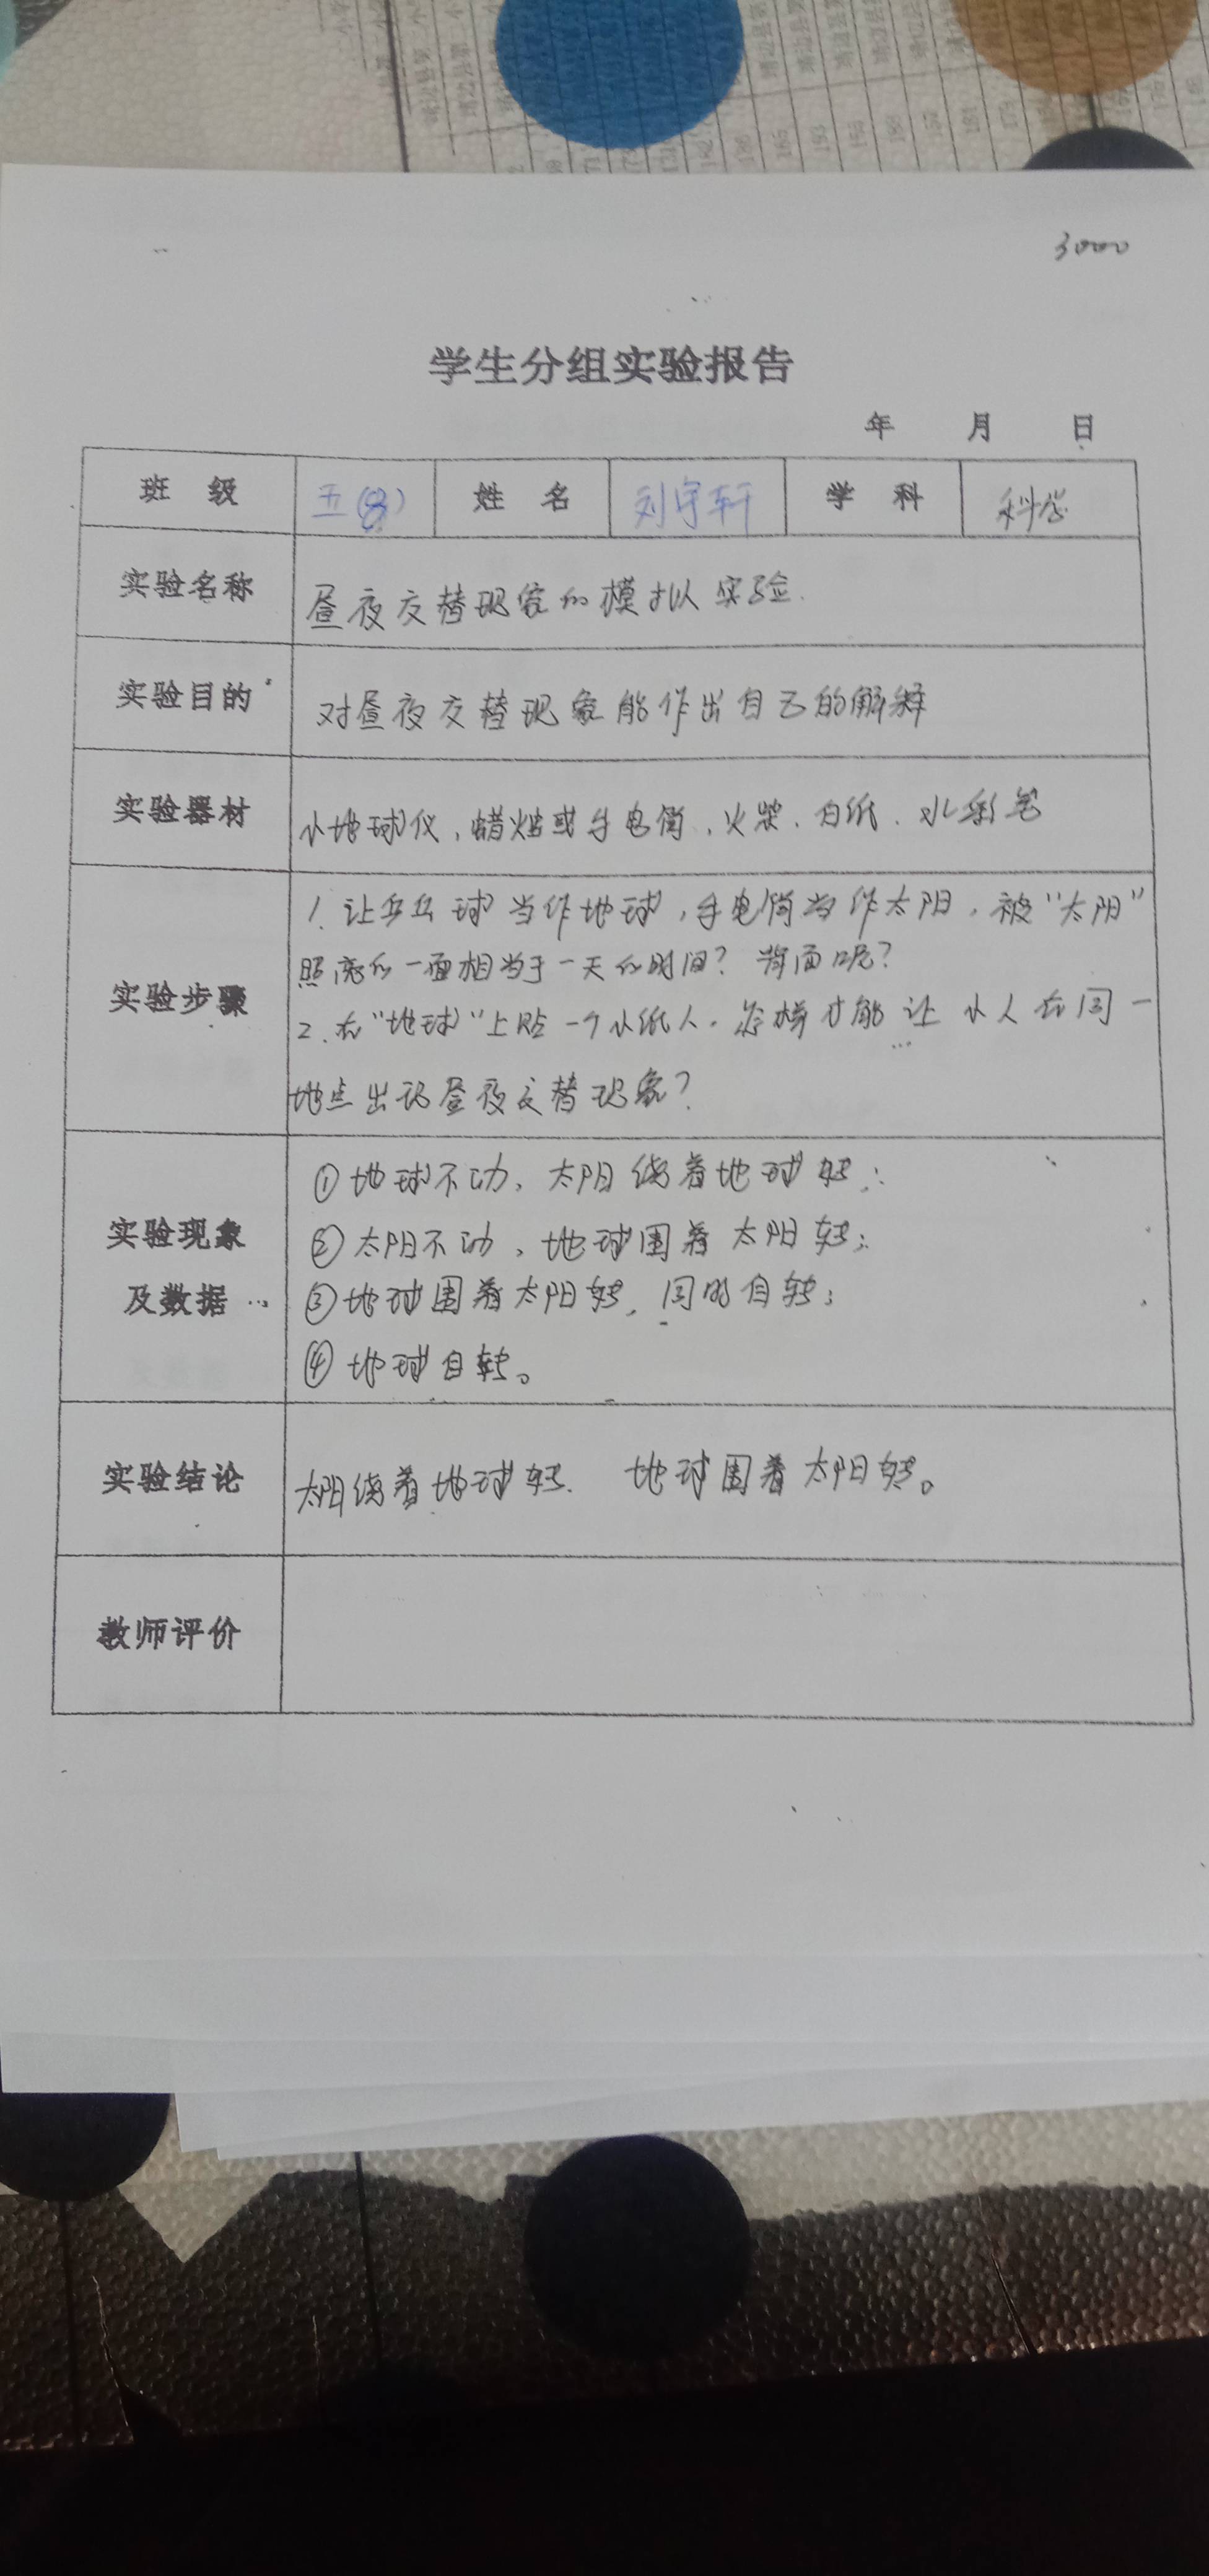 3000
学生分组实验报告
年 月 日
班 级 五(8) 姓 名 刘宇轩 学 科 科学
实验名称 昼夜交替现象的模拟实验.
实验目的 对昼夜交替现象能作出自己的解释
实验器材 小地球仪、蜡烛或手电筒、火柴、白纸、水彩笔
实验步骤
1. 让乒乓球当作地球,手电筒当作太阳,被“太阳”
照亮的一面相当于一天的时间?背面呢?
2. 在“地球”上贴一个小纸人。怎样才能让小人在同一
地点出现昼夜交替现象?
实验现象
及数据
①地球不动,太阳绕着地球转;
②太阳不动,地球围着太阳转;
③地球围着太阳转,同时自转;
④地球自转。
实验结论 太阳绕着地球转. 地球围着太阳转。
教师评价